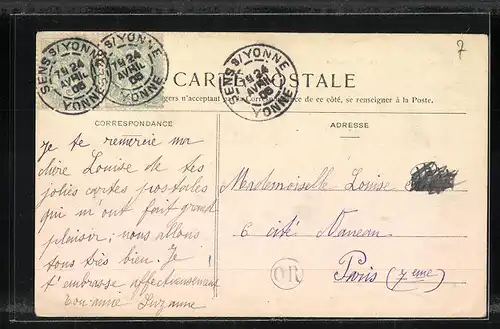 SENS S/YONNE
7H 24
AVRIL
08
YONNE
SENS S/YONNE
7H 24
AVRIL
08
YONNE
SENS S/YONNE
7H 24
AVRIL
08
YONNE
7
CARTE POSTALE
gers n'acceptant pas la Correspondance de ce côté, se renseigner à la Poste.
CORRESPONDANCE
Je te remercie ma
chère Louise de tes
jolies cartes postales
qui m'ont fait grand
plaisir; nous allons
tous très bien. Je
t'embrasse affectueusement
ton amie Suzanne
ADRESSE
Mademoiselle Louise
6 cité Vaneau
Paris (7eme)
OR